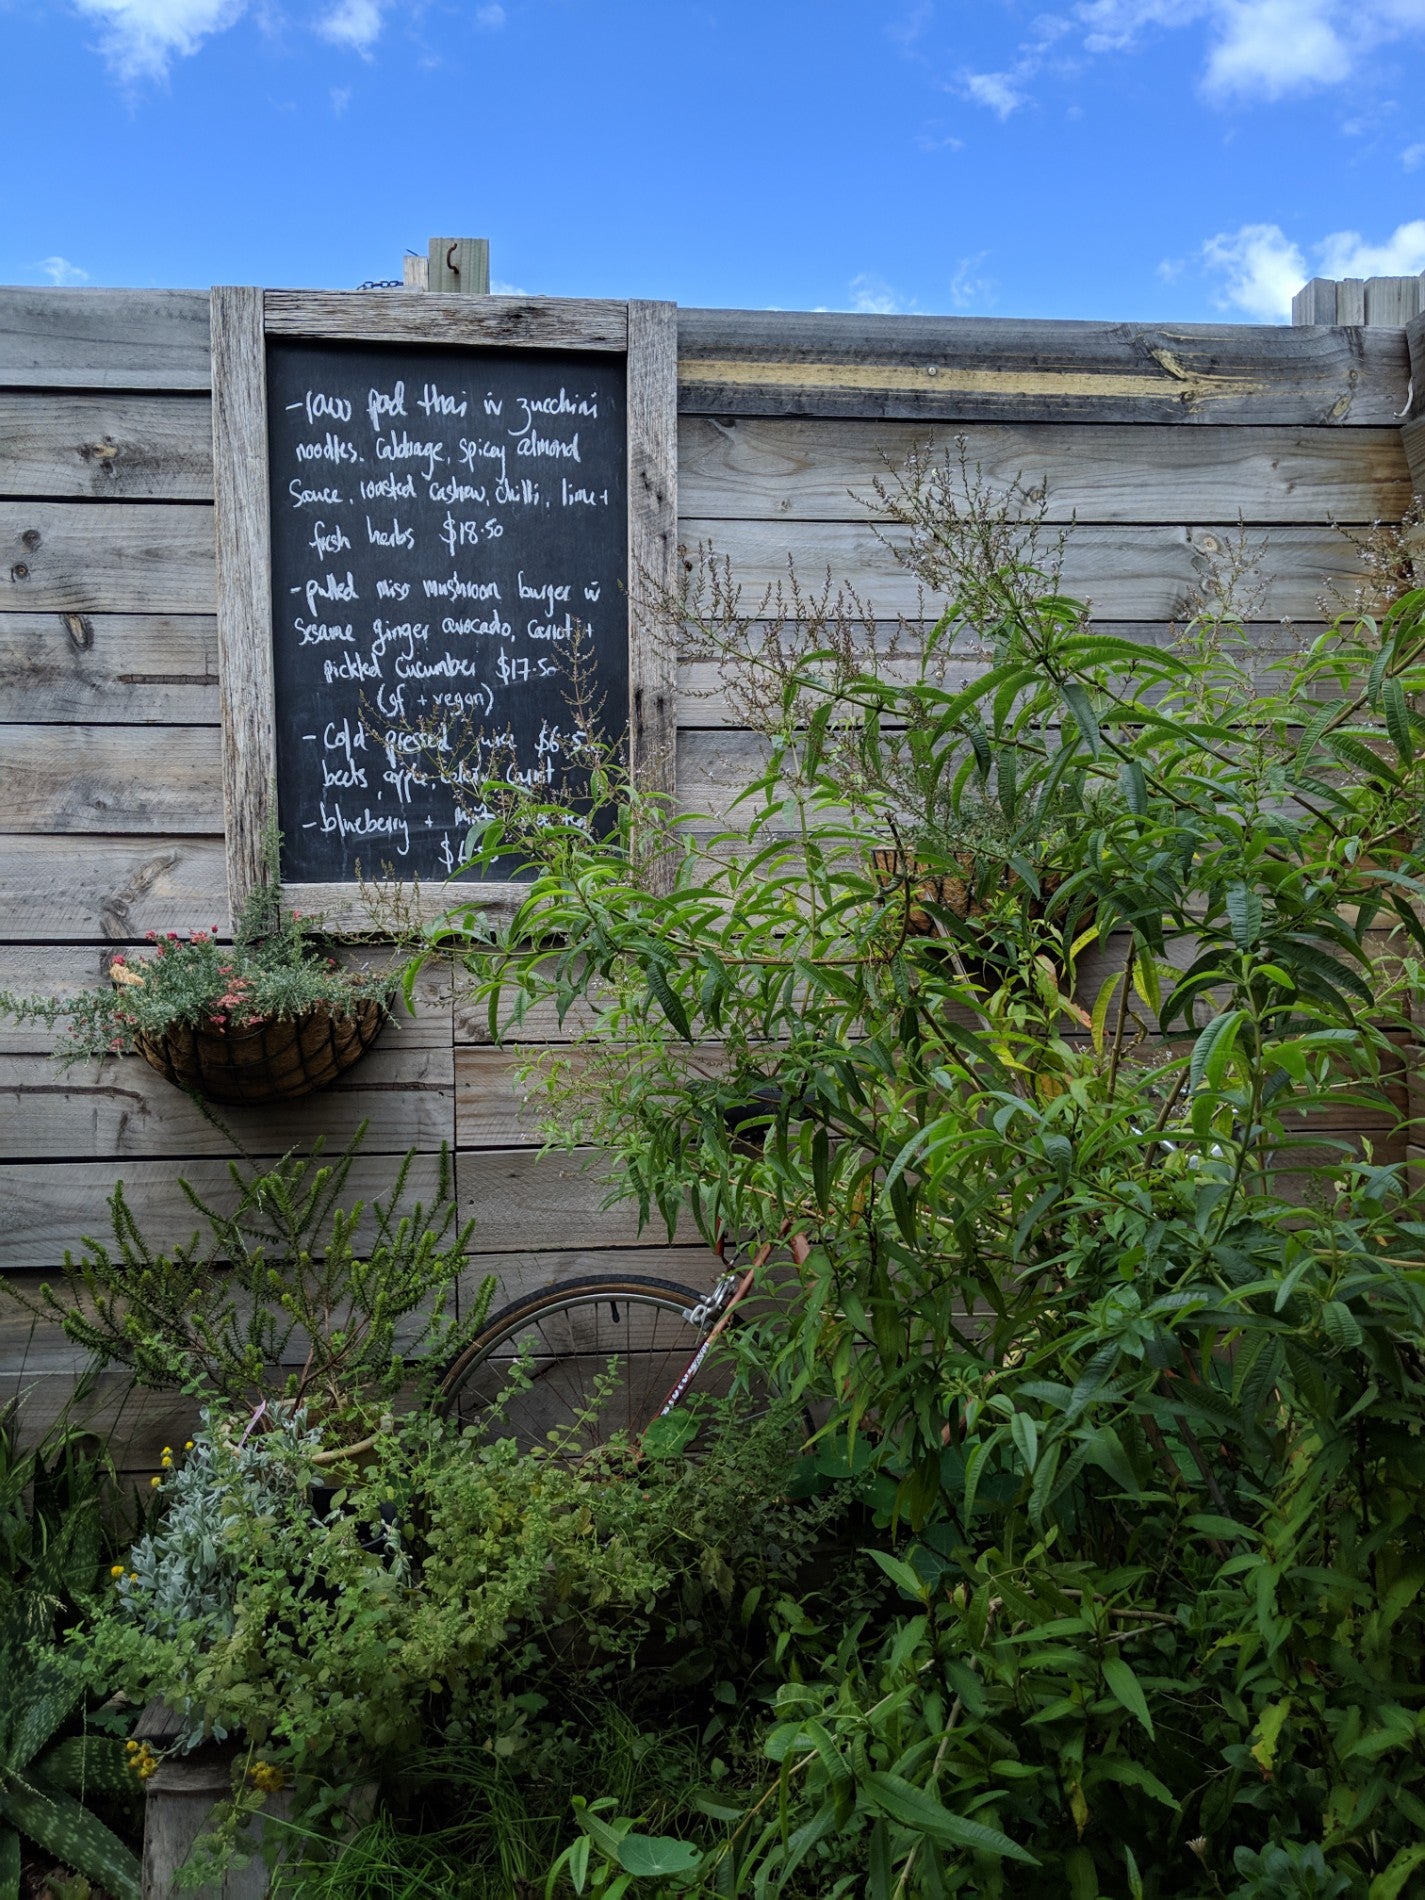 - raw pad thai w zucchini
noodles, cabbage, spicy almond
sauce, roasted cashew, chilli, lime +
fresh herbs $18.50
- pulled miso mushroom burger w
sesame ginger avocado, carrot +
pickled cucumber $17.50
(gf + vegan)
- Cold pressed juice $6.50
beets, apple, celery, carrot
- blueberry + mint